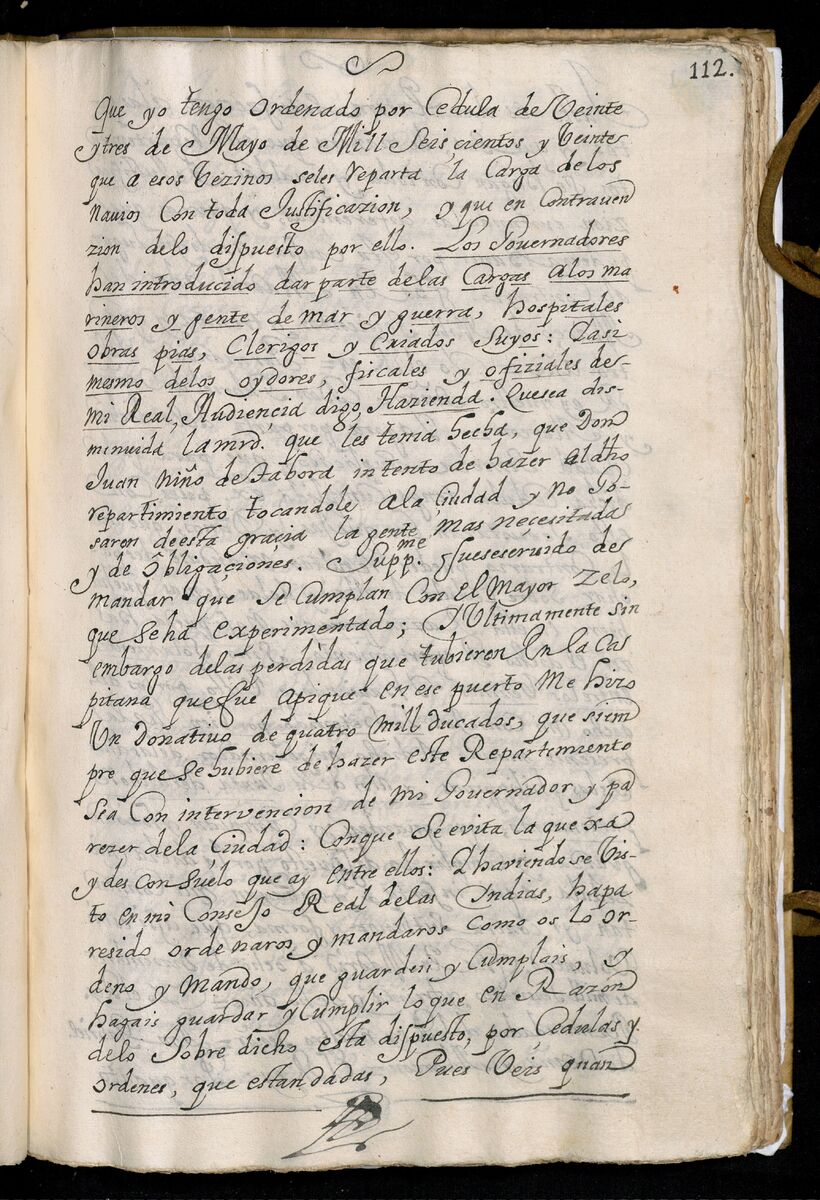 112.
Que yo tengo ordenado por Cedula de Veinte
y tres de Mayo de Mill Seis cientos y Veinte
que a esos Vezinos seles reparta la Carga delos
Navios Con toda Justificazion, y que en Contraven
zion delo dispuesto por ello. Los Governadores
han introducido dar parte de las Cargas alos ma
rineros y gente de mar y guerra, hospitales
obras pias, Clerigos y Criados Suyos: Iasi
mesmo delos oydores, fiscales y ofiziales de-
mi Real, Audiencia digo, Hazienda. Quesea dis-
minuida la mrd. que les tenia hecha, que Don
Juan Niño de tabora intento de hazer al dho
repartimiento tocandole ala Ciudad y No Go-
saren de esta gracia la gente mas necesitada
y de obligaciones. Suppme. fueseservido de
mandar que Se Cumplan Con el Mayor Zelo,
que Seha experimentado; Y Ultimamente sin
embargo delas perdidas que tubieren En la Ca
pitana que fue apique en ese puerto Me hizo
Un donativo de quatro Mill Ducados, que siem
pre que Sehubiere de hazer este Repartimiento
Sea Con intervencion de Mi Governador y pa
rezer dela Ciudad: Conque Se evita la quexa
y des con suelo que ay entre ellos: Y haviendo se Vis-
to en mi Consejo Real delas Indias, ha pa
resido ordenaros y mandaros como os lo or-
deno y Mando, que guardeis y Cumplais, y
hagais guardar y Cumplir lo que en Razon
delo Sobre dicho esta dispuesto, por Cedulas y
ordenes, que estan dadas, Pues Veis quan